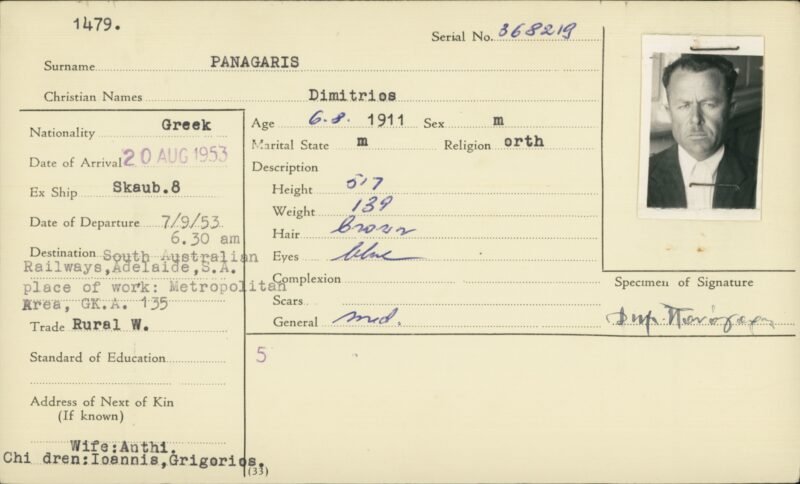 1479.
Serial No. 368219
Surname PANAGARIS
Christian Names Dimitrios
Nationality Greek
Date of Arrival 20 AUG 1953
Ex Ship Skaub.8
Date of Departure 7/9/53
6.30 am
Destination South Australian
Railways,Adelaide,S.A.
place of work: Metropolitan
Area, GK.A. 135
Trade Rural W.
Standard of Education
Address of Next of Kin
(If known)
Wife:Anthi.
Chi dren:Ioannis,Grigorios.
Age 6.8. 1911 Sex m
Marital State m Religion orth
Description
Height 5'7
Weight 139
Hair brown
Eyes blue
Complexion
Scars
General med.
5
(33)
Specimen of Signature
Δημ. Πανάγαρης